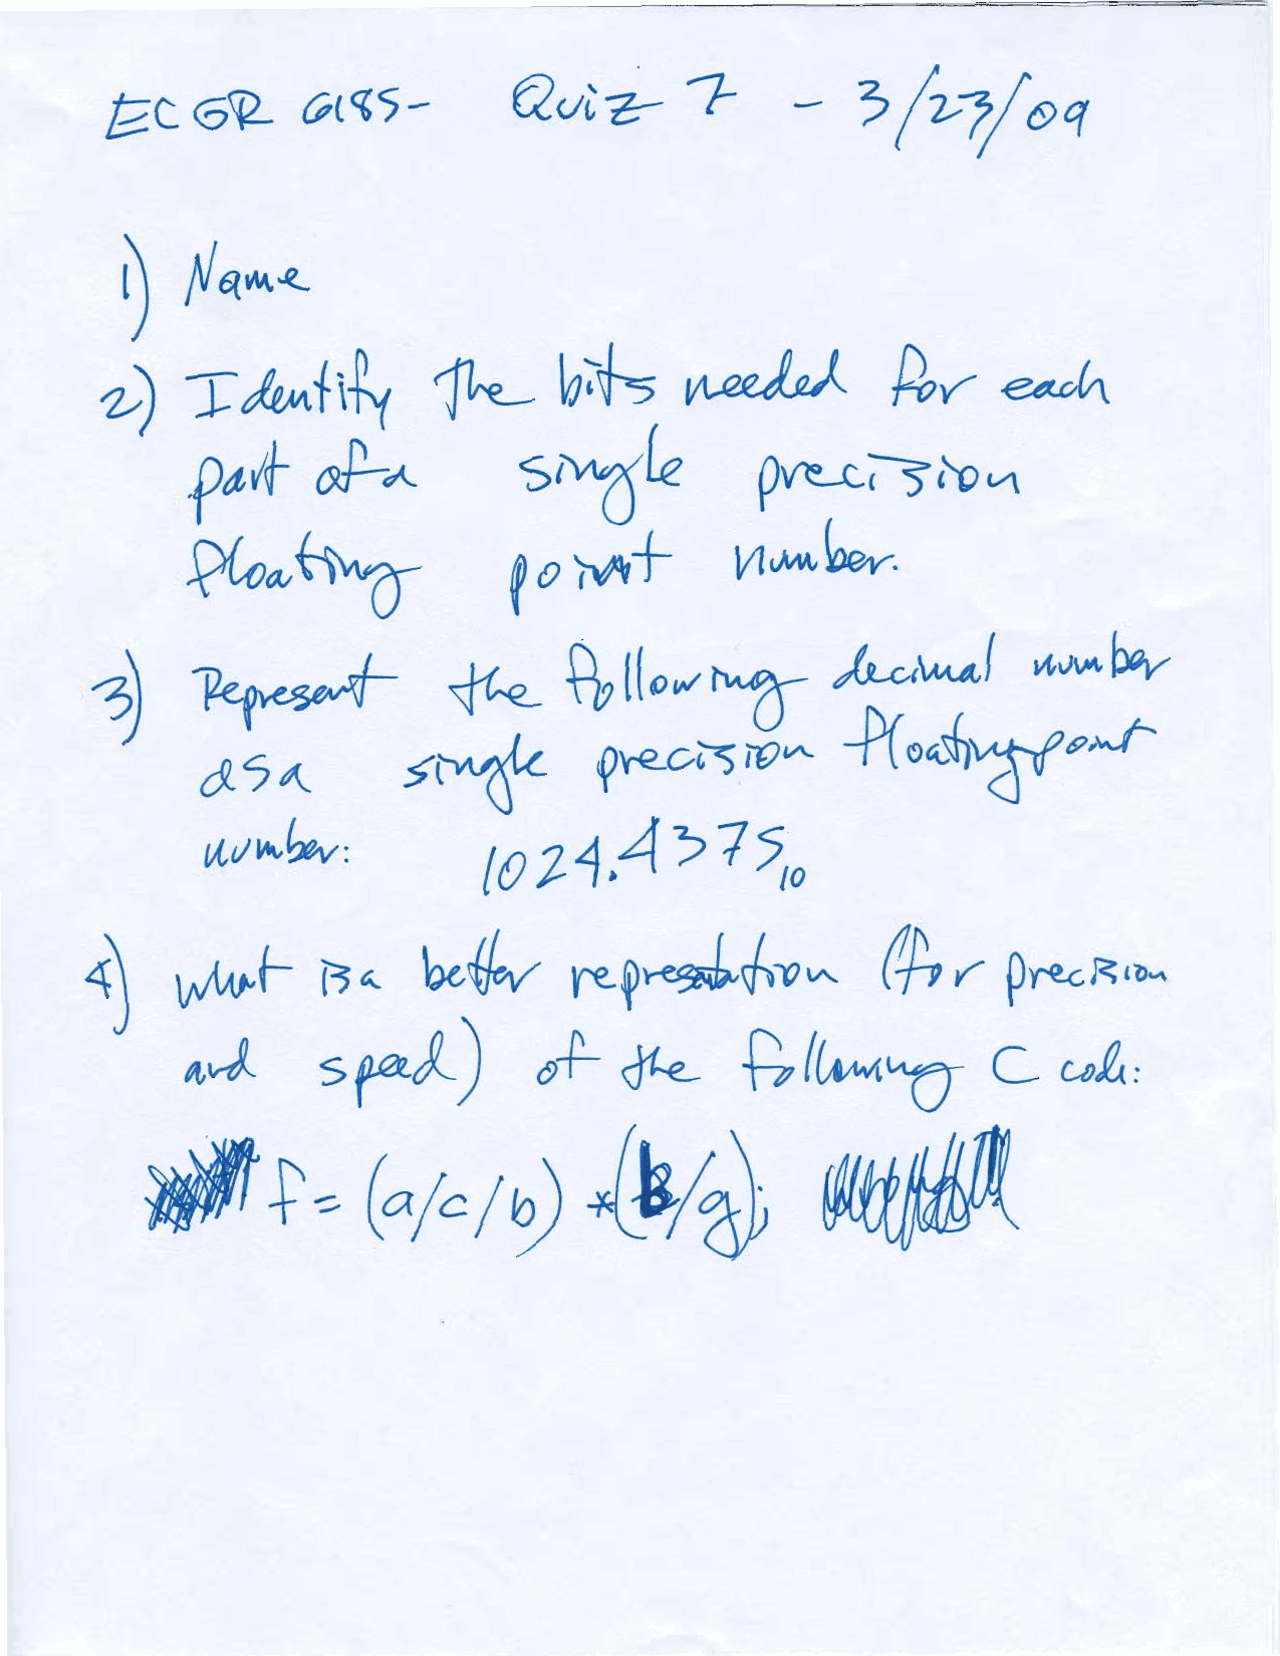 ECGR 6185- Quiz 7 - 3/23/09
1) Name
2) Identify the bits needed for each
part of a single precision
floating point number.
3) Represent the following decimal number
as a single precision floating point
number: 1024.4375₁₀
4) what is a better representation (for precision
and speed) of the following C code:
f = (a/c/b) * (b/g);